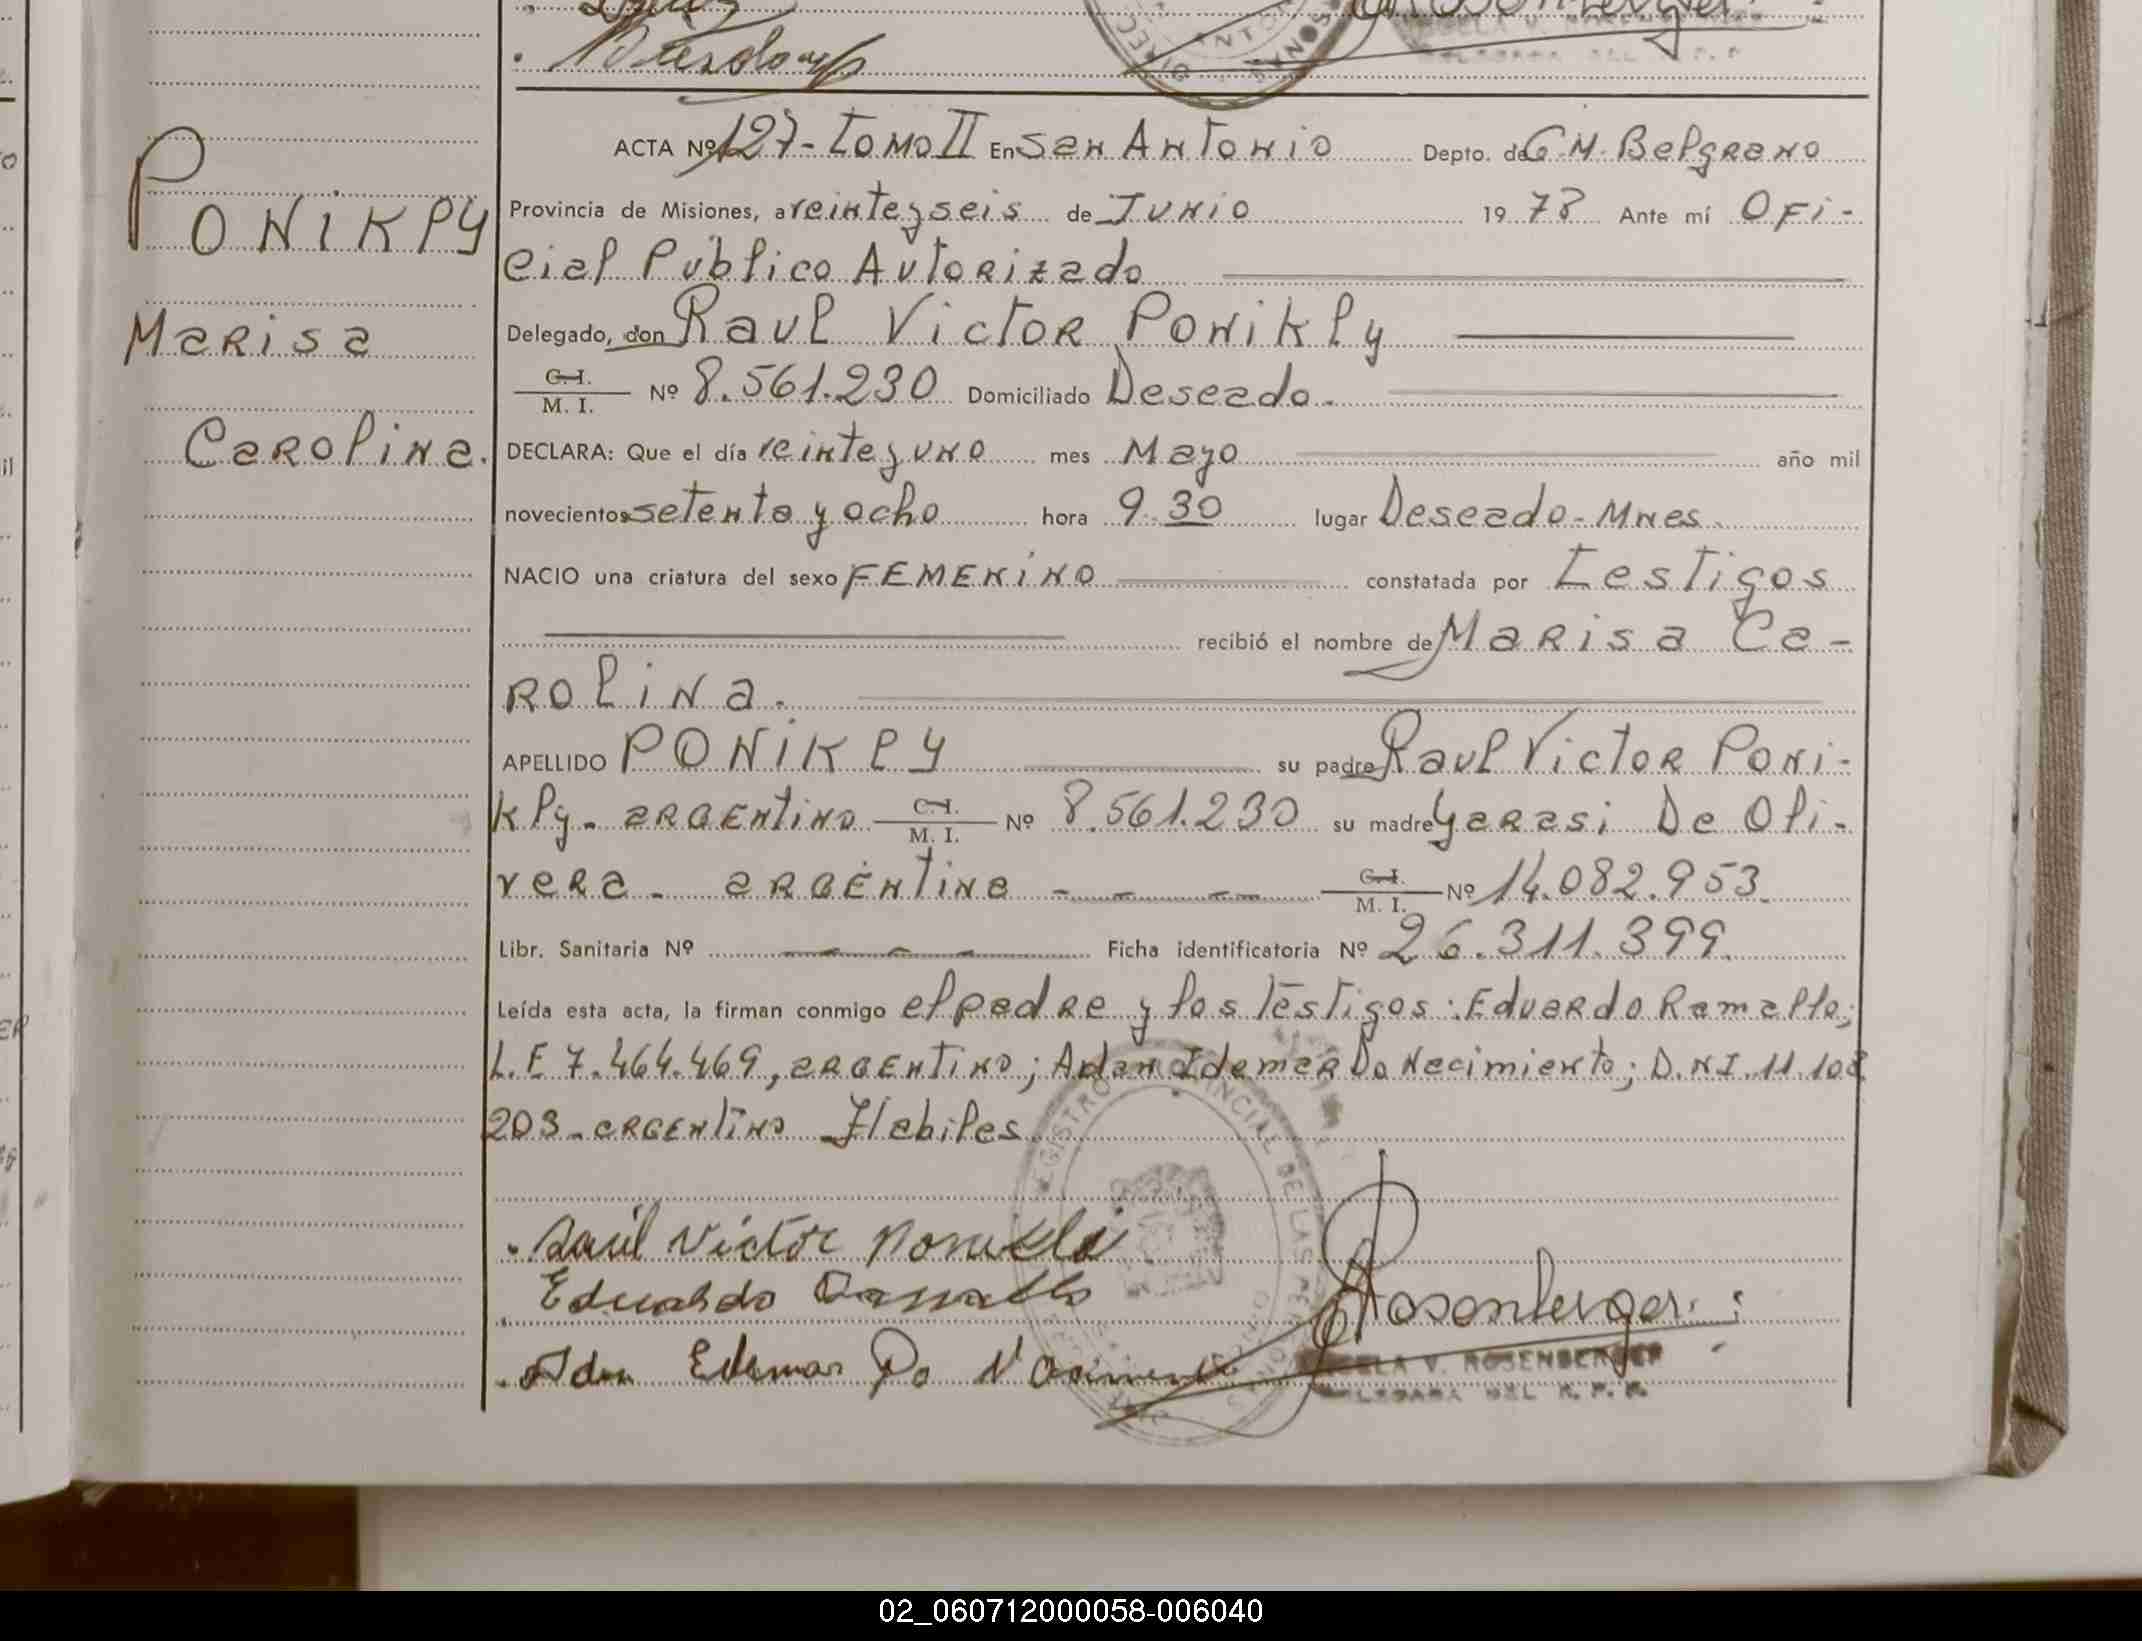 ACTA Nº 127- Tomo II En San Antonio Depto. de G.M. Belgrano
Provincia de Misiones, a veinteyseis de Junio 1978 Ante mí Ofi-
cial Público Autorizado
Delegado, don Raul Victor Ponikly
C.I. / M. I. Nº 8.561.230 Domiciliado Deseado.
DECLARA: Que el día veinteyuno mes Mayo año mil
novecientos setenta y ocho hora 9.30 lugar Deseado-Mnes.
NACIO una criatura del sexo FEMENINO constatada por Testigos
recibió el nombre de Marisa Ca-
rolina.
APELLIDO PONIKLY su padre Raul Victor Poni-
kly- argentino C.I. / M. I. Nº 8.561.230 su madre Yarasi De Oli-
vera- argentina C.I. / M. I. Nº 14.082.953.
Libr. Sanitaria Nº Ficha identificatoria Nº 26.311.399.
Leída esta acta, la firman conmigo el padre y los testigos: Eduardo Ramallo;
L.E 7.464.469, argentino; Adan Idemar Do Nacimiento; D.N.I. 11.108
203- argentino Habiles
PONIKLY
Marisa
Carolina.
Raúl Victor Ponikli
Eduardo Ramallo
Edemar Do
Rosenberger
V. ROSENBERGER
REGISTRO PROVINCIAL DE LAS PERSONAS
02_060712000058-006040